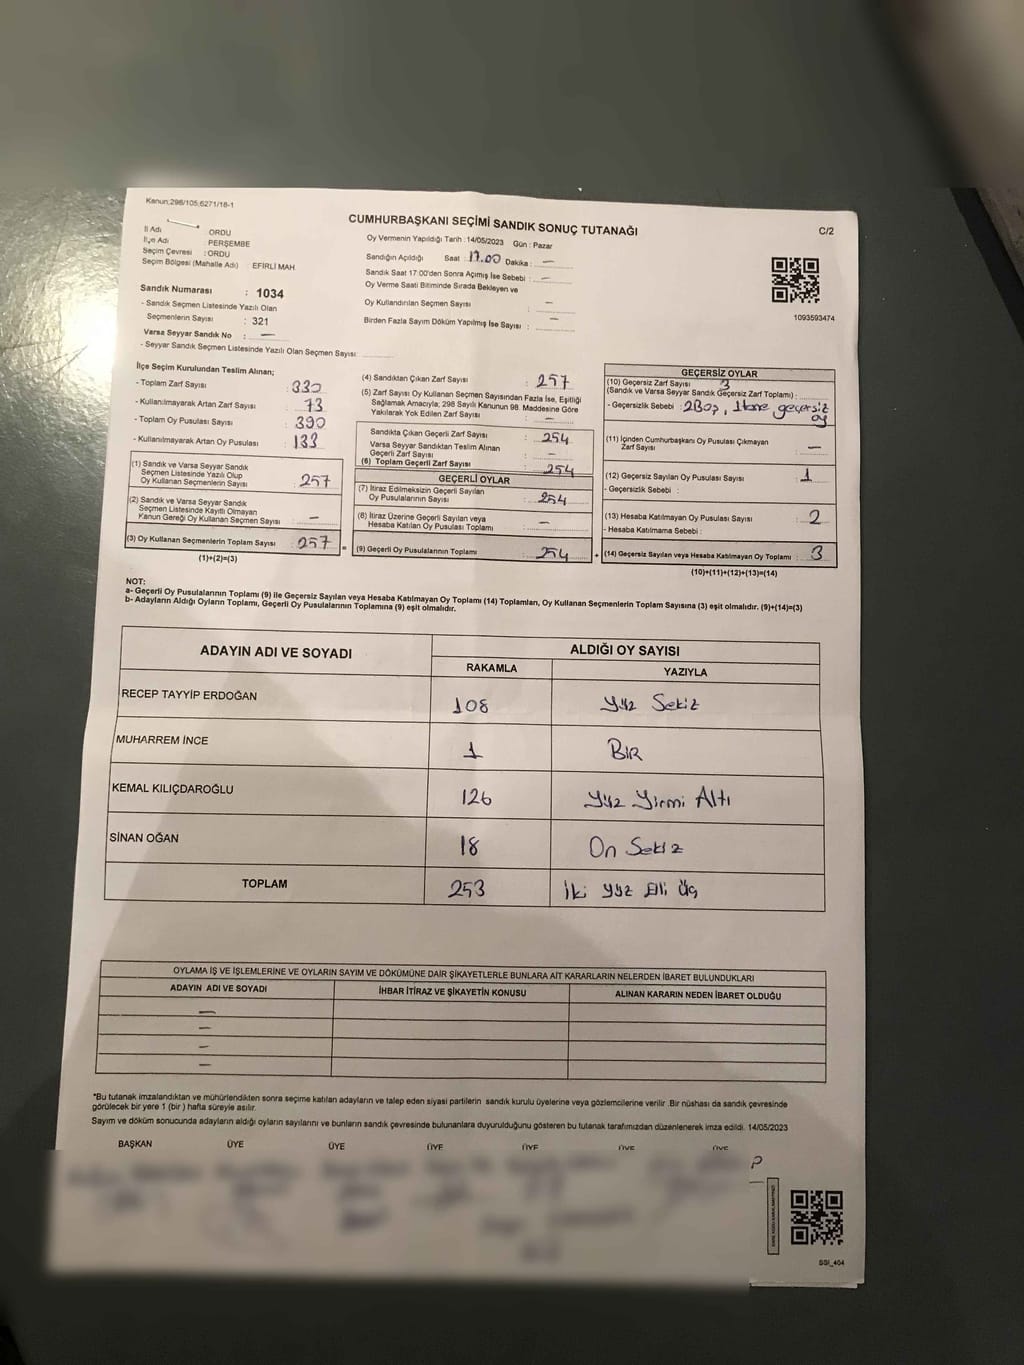 Kanun;298/105;6271/18-1
CUMHURBAŞKANI SEÇİMİ SANDIK SONUÇ TUTANAĞI
C/2
İl Adı : ORDU
İlçe Adı : PERŞEMBE
Seçim Çevresi : ORDU
Seçim Bölgesi (Mahalle Adı) : EFİRLİ MAH.
Oy Vermenin Yapıldığı Tarih : 14/05/2023 Gün : Pazar
Sandığın Açıldığı Saat : 17.00 Dakika : —
Sandık Saat 17:00'den Sonra Açımış İse Sebebi : —
Oy Verme Saati Bitiminde Sırada Bekleyen ve
Oy Kullandırılan Seçmen Sayısı —
Birden Fazla Sayım Döküm Yapılmış İse Sayısı : —
1093593474
Sandık Numarası : 1034
- Sandık Seçmen Listesinde Yazılı Olan
Seçmenlerin Sayısı : 321
Varsa Seyyar Sandık No : —
- Seyyar Sandık Seçmen Listesinde Yazılı Olan Seçmen Sayısı
İlçe Seçim Kurulundan Teslim Alınan;
- Toplam Zarf Sayısı : 330
- Kullanılmayarak Artan Zarf Sayısı : 73
- Toplam Oy Pusulası Sayısı : 390
- Kullanılmayarak Artan Oy Pusulası : 133
(1) Sandık ve Varsa Seyyar Sandık
Seçmen Listesinde Yazılı Olup
Oy Kullanan Seçmenlerin Sayısı : 257
(2) Sandık ve Varsa Seyyar Sandık
Seçmen Listesinde Kayıtlı Olmayan
Kanun Gereği Oy Kullanan Seçmen Sayısı : —
(3) Oy Kullanan Seçmenlerin Toplam Sayısı : 257
(1)+(2)=(3)
(4) Sandıktan Çıkan Zarf Sayısı : 257
(5) Zarf Sayısı Oy Kullanan Seçmen Sayısından Fazla İse, Eşitliği
Sağlamak Amacıyla, 298 Sayılı Kanunun 98. Maddesine Göre
Yakılarak Yok Edilen Zarf Sayısı : —
Sandıkta Çıkan Geçerli Zarf Sayısı : 254
Varsa Seyyar Sandıktan Teslim Alınan
Geçerli Zarf Sayısı : —
(6) Toplam Geçerli Zarf Sayısı : 254
GEÇERLİ OYLAR
(7) İtiraz Edilmeksizin Geçerli Sayılan
Oy Pusulalarının Sayısı : 254
(8) İtiraz Üzerine Geçerli Sayılan veya
Hesaba Katılan Oy Pusulası Toplamı : —
= (9) Geçerli Oy Pusulalarının Toplamı : 254
GEÇERSİZ OYLAR
(10) Geçersiz Zarf Sayısı 3
(Sandık ve Varsa Seyyar Sandık Geçersiz Zarf Toplamı) :
- Geçersizlik Sebebi : 2Boş, 1tane geçersiz
oy
(11) İçinden Cumhurbaşkanı Oy Pusulası Çıkmayan
Zarf Sayısı : —
(12) Geçersiz Sayılan Oy Pusulası Sayısı : 1
- Geçersizlik Sebebi :
(13) Hesaba Katılmayan Oy Pusulası Sayısı : 2
- Hesaba Katılmama Sebebi :
+ (14) Geçersiz Sayılan veya Hesaba Katılmayan Oy Toplamı : 3
(10)+(11)+(12)+(13)=(14)
NOT:
a- Geçerli Oy Pusulalarının Toplamı (9) ile Geçersiz Sayılan veya Hesaba Katılmayan Oy Toplamı (14) Toplamları, Oy Kullanan Seçmenlerin Toplam Sayısına (3) eşit olmalıdır. (9)+(14)=(3)
b- Adayların Aldığı Oyların Toplamı, Geçerli Oy Pusulalarının Toplamına (9) eşit olmalıdır.
ADAYIN ADI VE SOYADI
ALDIĞI OY SAYISI
RAKAMLA YAZIYLA
RECEP TAYYİP ERDOĞAN 108 Yüz Sekiz
MUHARREM İNCE 1 BİR
KEMAL KILIÇDAROĞLU 126 Yüz Yirmi Altı
SİNAN OĞAN 18 On Sekiz
TOPLAM 253 İki yüz Elli Üç
OYLAMA İŞ VE İŞLEMLERİNE VE OYLARIN SAYIM VE DÖKÜMÜNE DAİR ŞİKAYETLERLE BUNLARA AİT KARARLARIN NELERDEN İBARET BULUNDUKLARI
ADAYIN ADI VE SOYADI İHBAR İTİRAZ VE ŞİKAYETİN KONUSU ALINAN KARARIN NEDEN İBARET OLDUĞU
—
—
—
—
*Bu tutanak imzalandıktan ve mühürlendikten sonra seçime katılan adayların ve talep eden siyasi partilerin sandık kurulu üyelerine veya gözlemcilerine verilir .Bir nüshası da sandık çevresinde
görülecek bir yere 1 (bir ) hafta süreyle asılır.
Sayım ve döküm sonucunda adayların aldığı oyların sayılarını ve bunların sandık çevresinde bulunanlara duyurulduğunu gösteren bu tutanak tarafımızdan düzenlenerek imza edildi. 14/05/2023
BAŞKAN ÜYE ÜYE ÜYE ÜYE ÜYE ÜYE
SSI_404